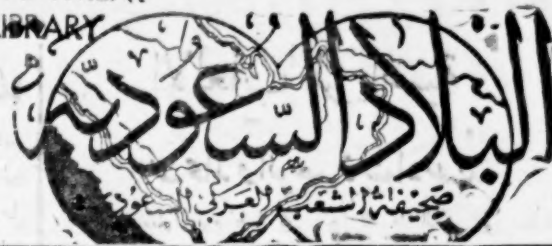 LIBRARY
البلاد السعودية
صحيفة الشعب العربي السعودي